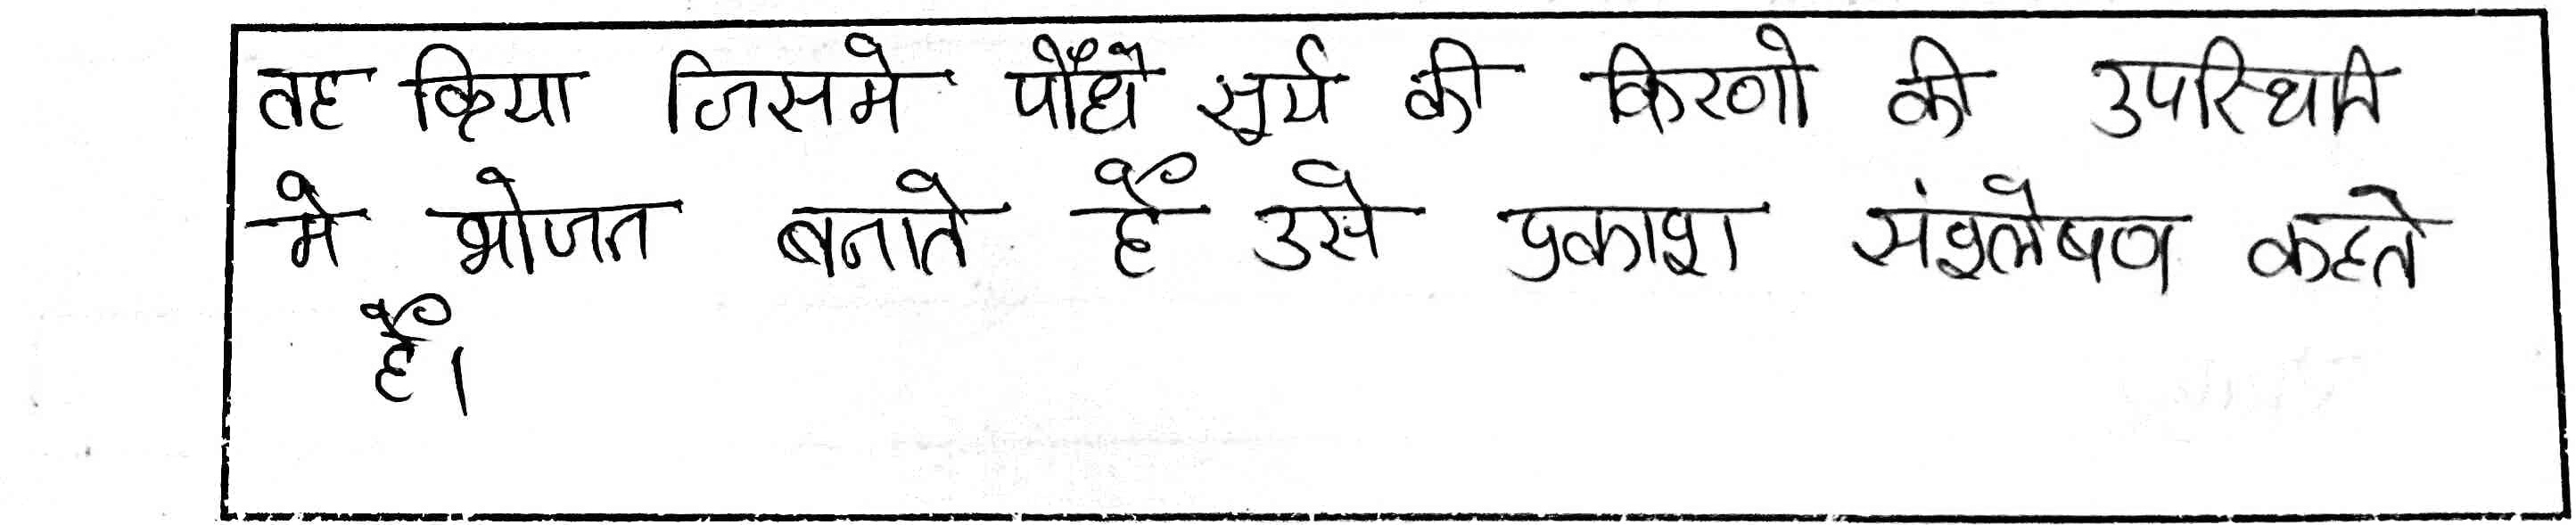 वह क्रिया जिसमे पौधे सूर्य की किरणो की उपस्थिति
मे भोजन बनाते हैं उसे प्रकाश संश्लेषण कहते
हैं।